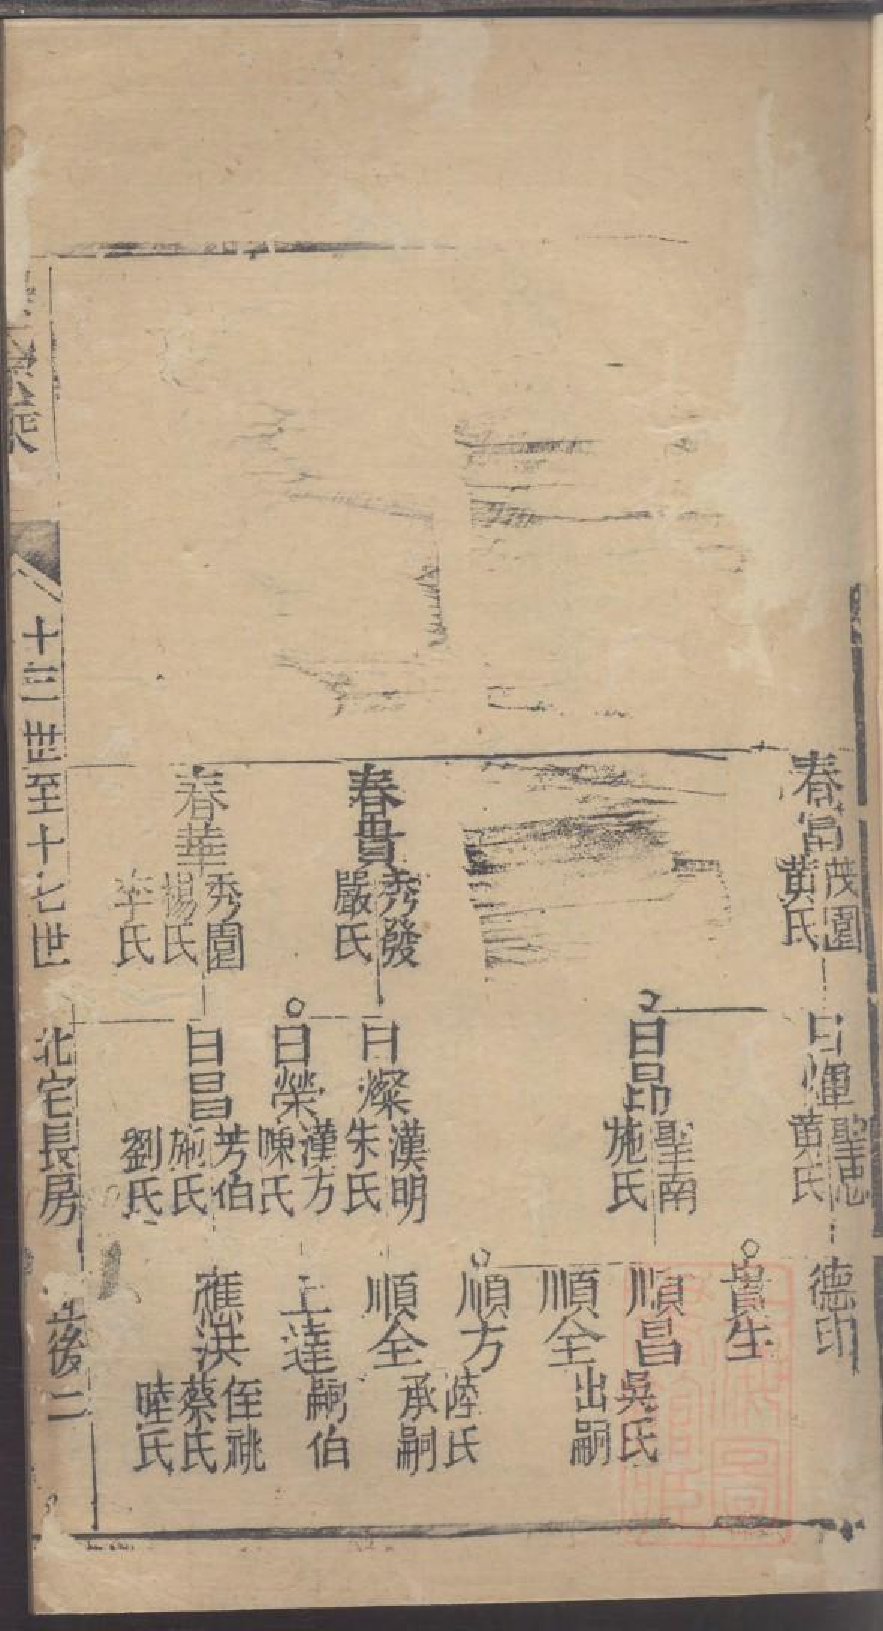 春富
茂園
黄氏
春貴
秀發
嚴氏
春華
秀園
楊氏
李氏
日煇
聖忠
黄氏
日昂
聖南
施氏
日燦
漢明
朱氏
日榮
漢方
陳氏
日昌
芳伯
施氏
劉氏
德印
貴生
順昌
吳氏
順全
出嗣
順方
陸氏
順全
承嗣
上達
嗣伯
應洪
侄祧
蔡氏
陸氏
十三世至十七世
北宅長房
後二